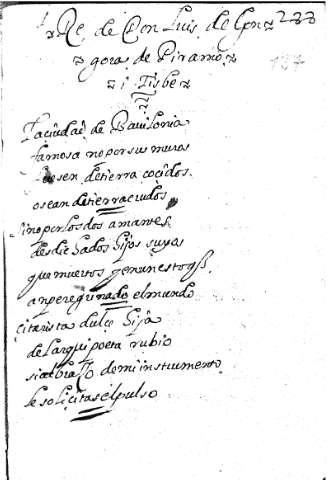 Rce. de Don Luis de Gon 233
gora de Piramo
i Tisbe 137
La ciudad de Bauilonia
famosa no por sus muros
sean de tierra cocidos
o sean de tierra crudos
sino por los dos amantes
desdichados hijos suyos
que muertos y en un estoqe
an peregrinado el mundo
citarista dulçe hija
del arquipoeta rubio
si al braço de mi instrumento
le soliçitas el pulso